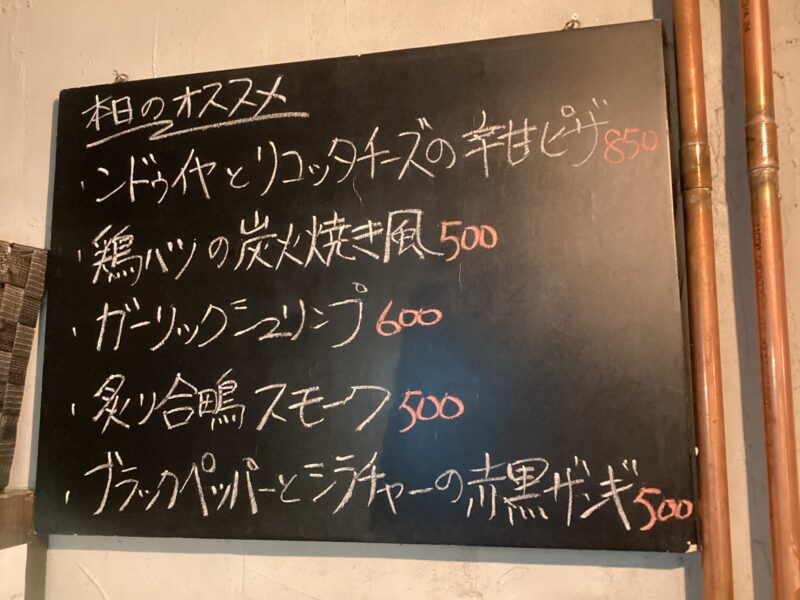 本日のオススメ
・ンドゥイヤとリコッタチーズの辛甘ピザ850
・鶏ハツの炭火焼き風500
・ガーリックシュリンプ600
・炙り合鴨スモーク500
・ブラックペッパーとシラチャーの赤黒ザンギ500